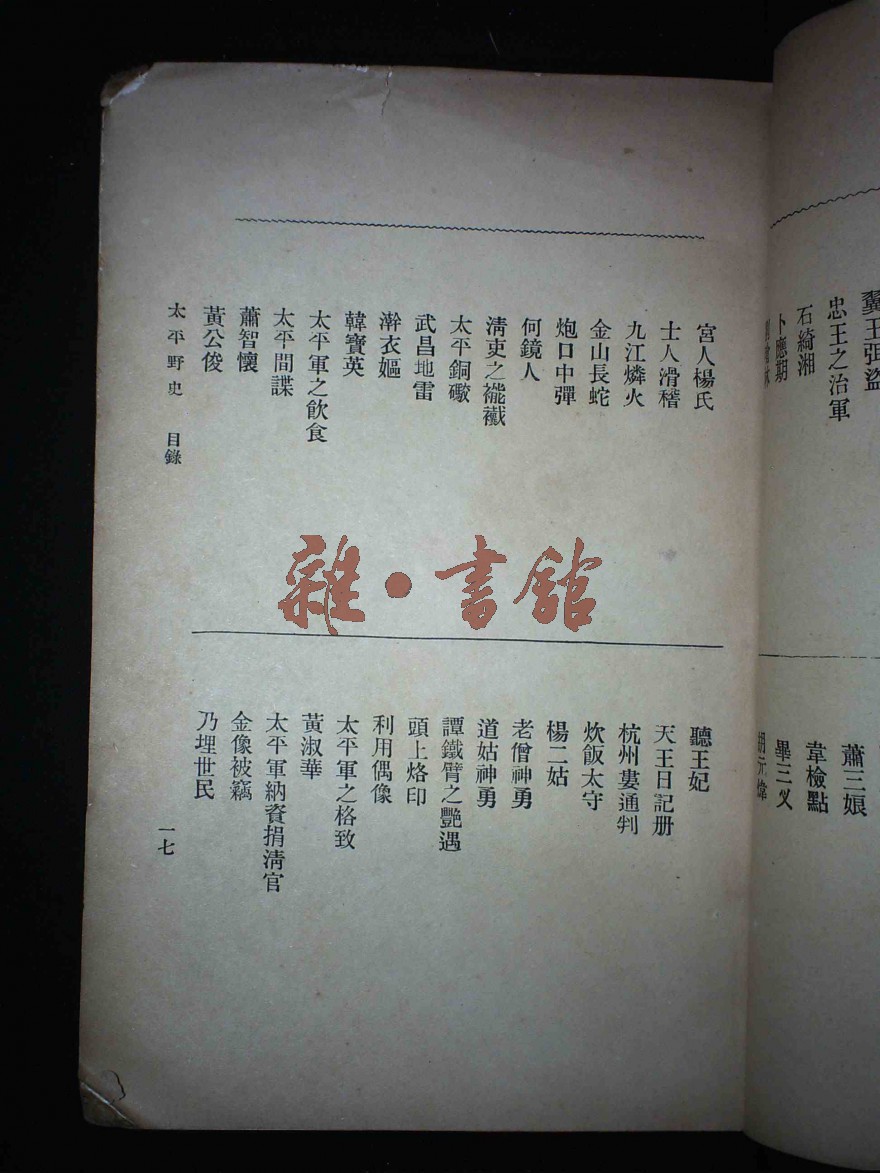 翼王弭盜
忠王之治軍
石綺湘
卜應期
蕭三娘
韋檢點
畢三义
胡元煒
宮人楊氏
士人滑稽
九江燐火
金山長蛇
炮口中彈
何鏡人
清吏之褦襶
太平銅礮
武昌地雷
澣衣嫗
韓寶英
太平軍之飲食
太平間諜
蕭智懷
黃公俊
聽王妃
天王日記册
杭州婁通判
炊飯太守
楊二姑
老僧神勇
道姑神勇
譚鐵臂之艷遇
頭上烙印
利用偶像
太平軍之格致
黃淑華
太平軍納資捐清官
金像被竊
乃埋世民
太平野史 目錄
一七
雜·書館